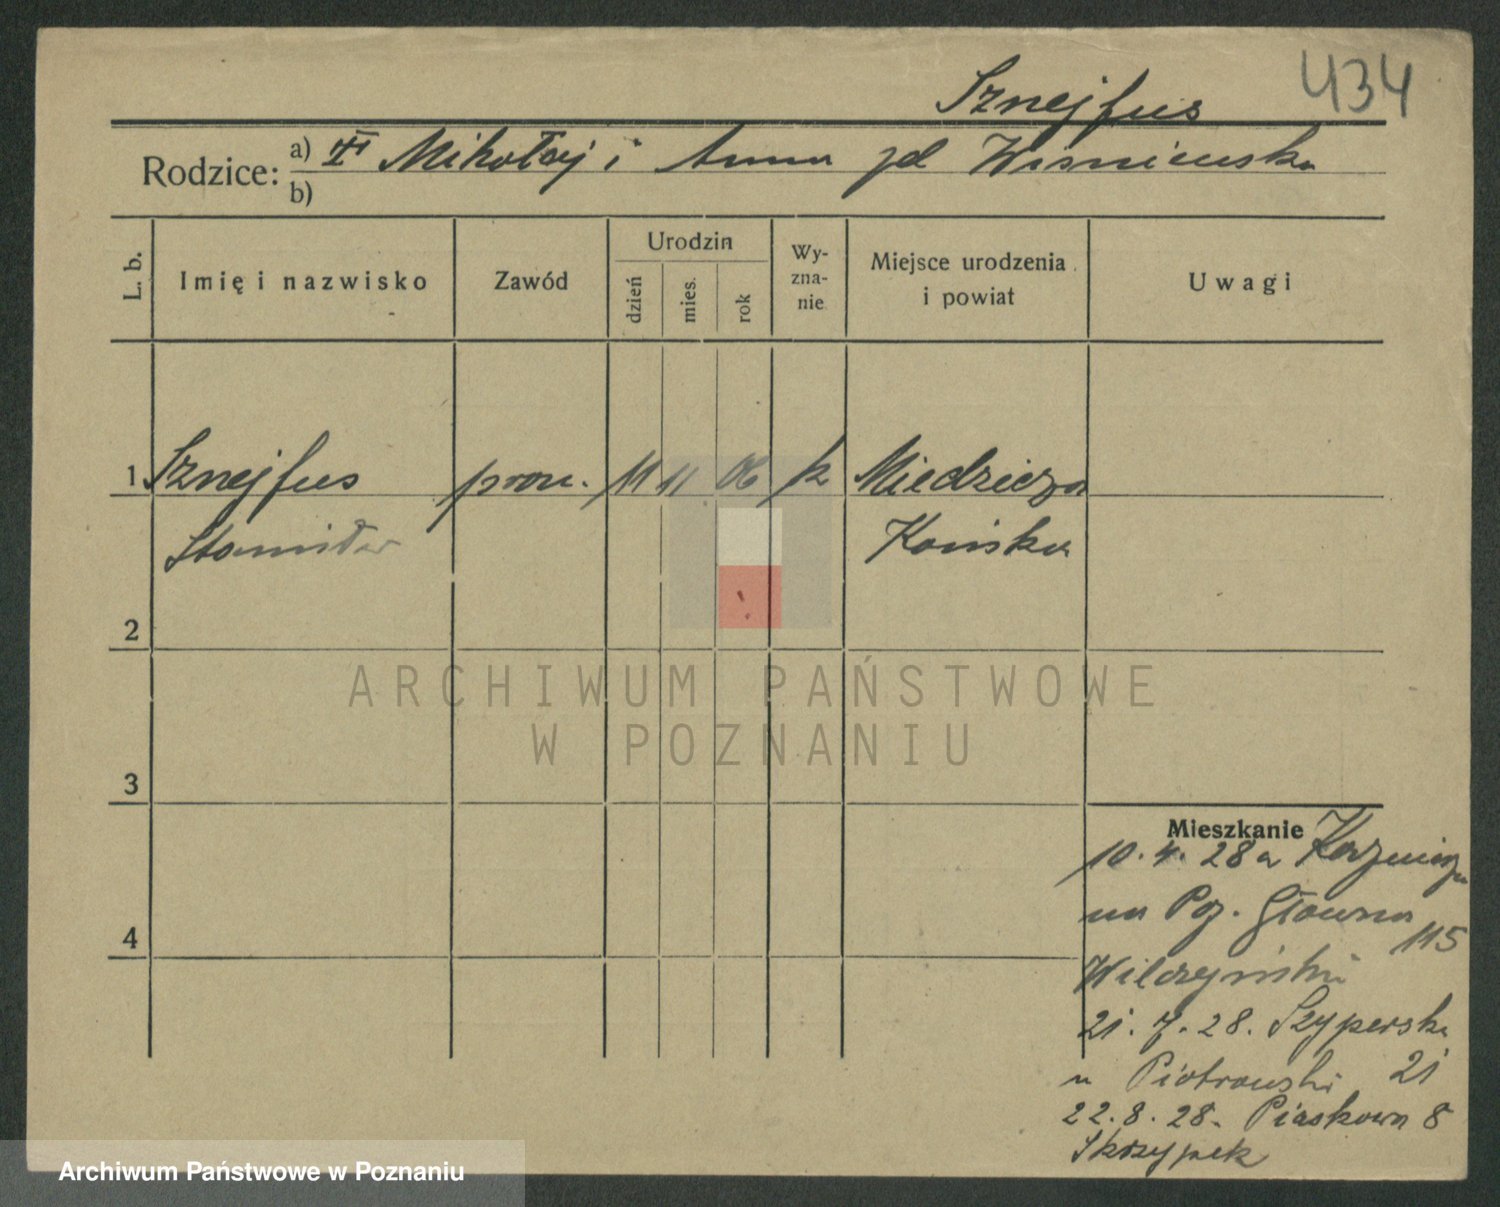 434
Sznejfus
Rodzice: a) Mikołaj i Anna zd Wiśniewska
b)
L. b. Imię i nazwisko Zawód Urodzin dzień mies. rok Wy-zna-nie Miejsce urodzenia i powiat Uwagi
1 Sznejfus prac. 11 11 06 k
Stanisław Końska
2
ARCHIWUM PAŃSTWOWE
W POZNANIU
3
Mieszkanie
10.4.28 z
4 na Poz. Główna
115
Wilczyński
21.7.28. Szyperska
u Piotrowski 21
22.8.28. Piaskowa 8
Skrzypek
Archiwum Państwowe w Poznaniu